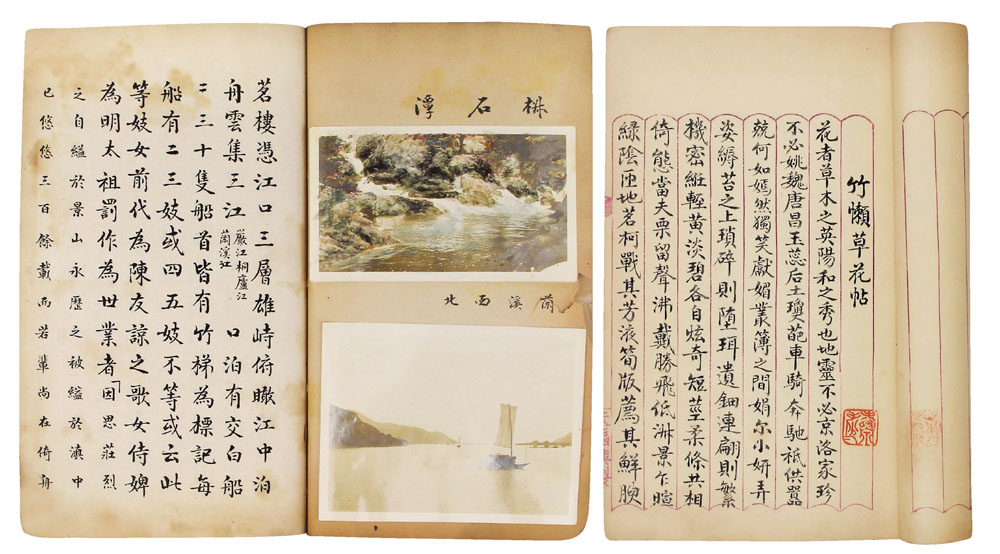 茗樓憑江口三層雄峙俯瞰江中泊
舟雲集三江嚴江桐廬江蘭溪江口泊有交白船
二三十隻船首皆有竹梯為標記每
船有二三妓或四五妓不等或云此
等妓女前代為陳友諒之歌女侍婢
為明太祖罰作為世業者「因思莊烈
之自縊於景山永歷之被縊於滇中
已悠悠三百餘載而若輩尚在倚舟
栟石潭
蘭溪西北
竹懶草花帖
花者草木之英陽和之秀也地靈不必京洛家珍
不必姚魏唐昌玉蕊后土瓊葩車騎奔馳祇供囂
兢何如嫣然獨笑獻媚叢簿之間娟尔小妍弄
姿縟苔之上瑣碎則墮珥遺鈿連翩則繁
機密維輕黃淡碧各自炫奇短莖柔條共相
倚態當夫栗留聲沸戴勝飛低淑景乍暄
綠陰匝地茗柯戰其芳液筍版薦其鮮腴